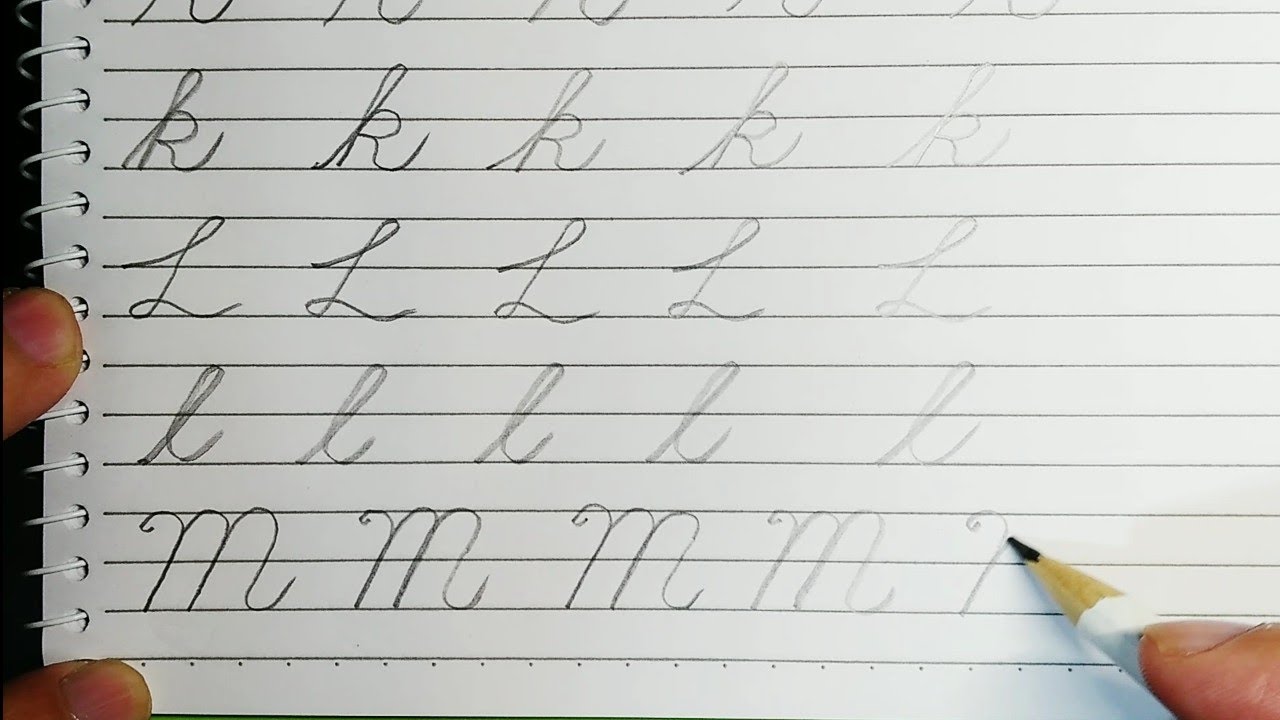 k k k k k
L L L L L
l l l l l
M M M M